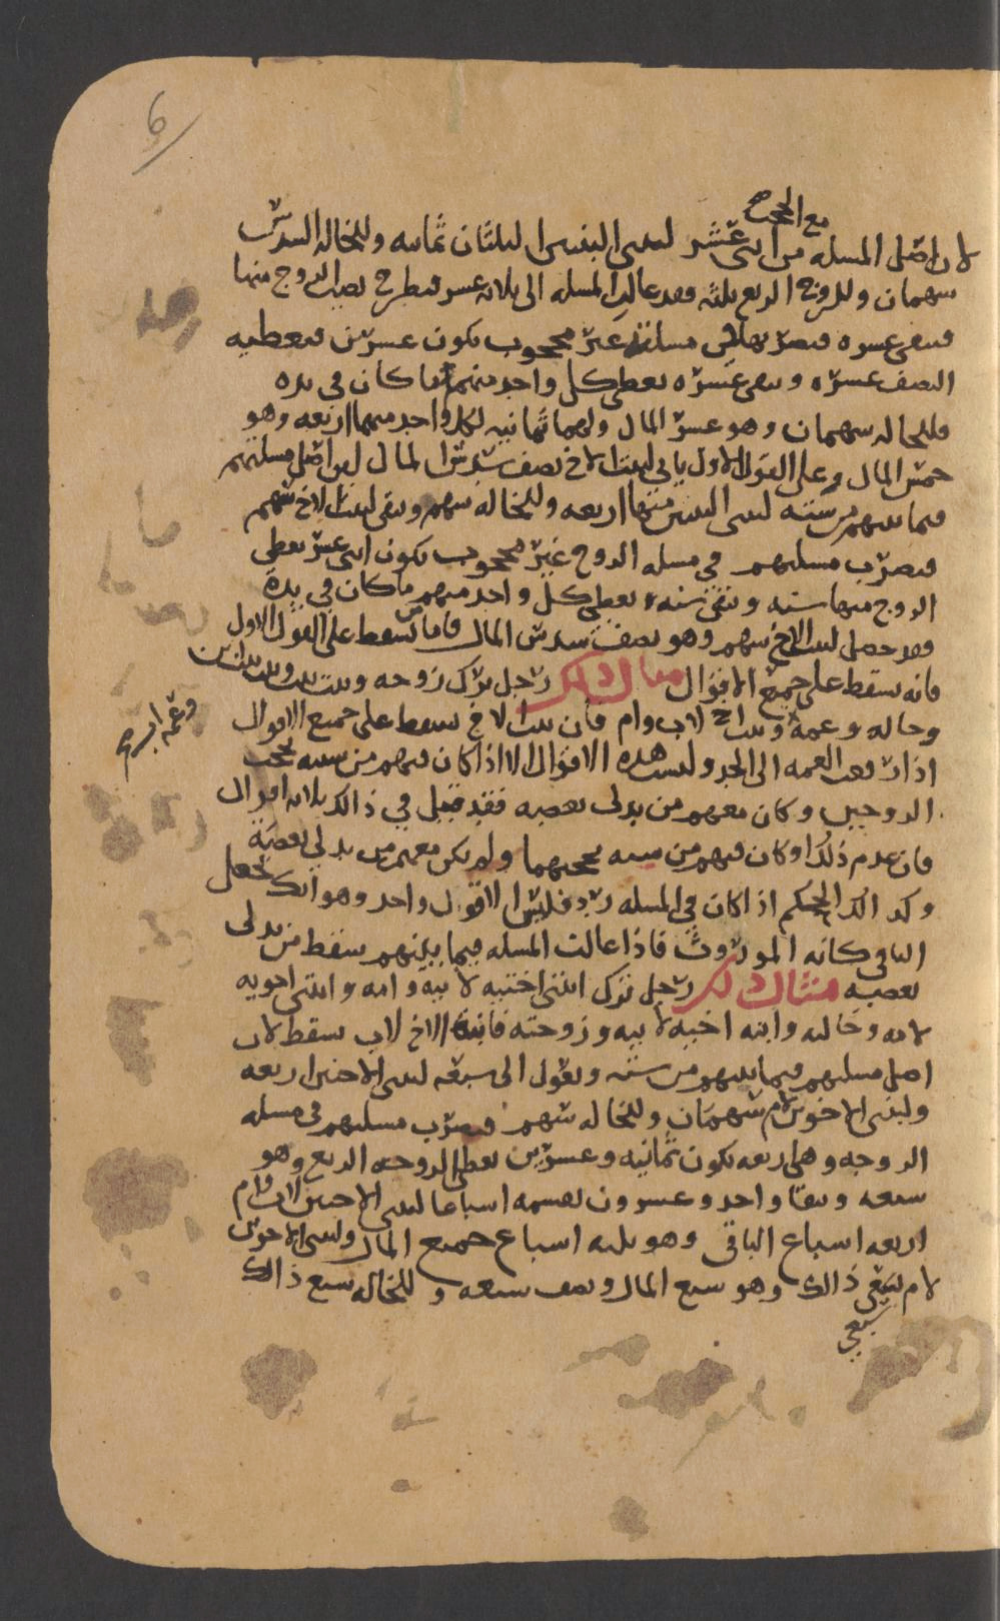 6
مع الححب
لان اصل المسله من اثنى عشر لبنتى البنتين الثلثان ثمانيه وللخاله السدس
سهمان وللزوج الربع ثلثه فقد عالت المسله الى ثلاثه عشر فيطرح نصيب الزوج منها
فتبقى عشره فتضربها في مسله غير محجوب يكون عشرين فتعطيه
النصف عشره وتبقى عشره تعطى كل واحد منهم ما كان في يده
فللخاله سهمان وهو عشر المال ولهما ثمانيه لكل واحد منهما اربعه وهو
خمس المال وعلى القول الاول ياتي لبنت الاخ نصف سدس المال لان اصل مسلتهم
فيما بينهم من سته لبنتى البنتين منها اربعه وللخاله سهم وبقى لبنت الاخ سهم
فتضرب مسلتهم في مسله الزوج غير محجوب يكون اثنى عشر تعطى
الزوج منها سته وتبقى سته تعطى كل واحد منهم ما كان في يده
فقد حصل لبنت الاخ سهم وهو نصف سدس المال فاما من يسقط على القول الاول
فانه يسقط على جميع الاقوال مثال ذلك رجل ترك زوجه وبنت بنت وبنت بنت ابن
وخاله وعمة وبنت اخ لاب وام فان بنت الاخ تسقط على جميع الاقوال
وعمة ابيه
اذا رفعت العمه الى الجد وليست هذه الاقوال الا اذا كان فيهم من سببه يحجب
الزوجين وكان معهم من يدلى بعصبه فقد قيل في ذالك ثلاثه اقوال
فان عدم ذلك او كان فيهم من سببه يحجبهما ولم يكن معهم من يدلي بعصبة
وكذالك الحكم اذا كان في المسله رد فليس الا قول واحد وهو انك تجعل
الباقي كانه الموروث فاذا عالت المسله فيما بينهم سقط من يدلى
بعصبه مثال ذلك رجل ترك ابنتى اختيه لابيه وامه وابنتى اخويه
لامه وخالته وابنه اخيه لابيه وزوجته فابنة الاخ لاب تسقط لان
اصل مسلتهم فيما بينهم من سته وتعول الى سبعه لبنتى الاختين اربعه
ولبنتى الاخوين لام سهمان وللخاله سهم فتضرب مسلتهم في مسله
الزوجه وهي اربعه يكون ثمانيه وعشرين تعطى الزوجه الربع وهو
سبعه ويبقا واحد وعشرون تقسمه اسباعا لبنتى الاختين لاب وام
اربعه اسباع الباقي وهو ثلثه اسباع جميع المال ولبنتى الاخوين
لام سبعى ذالك وهو سبع المال ونصف سبعه وللخاله سبع ذالك
سبعي